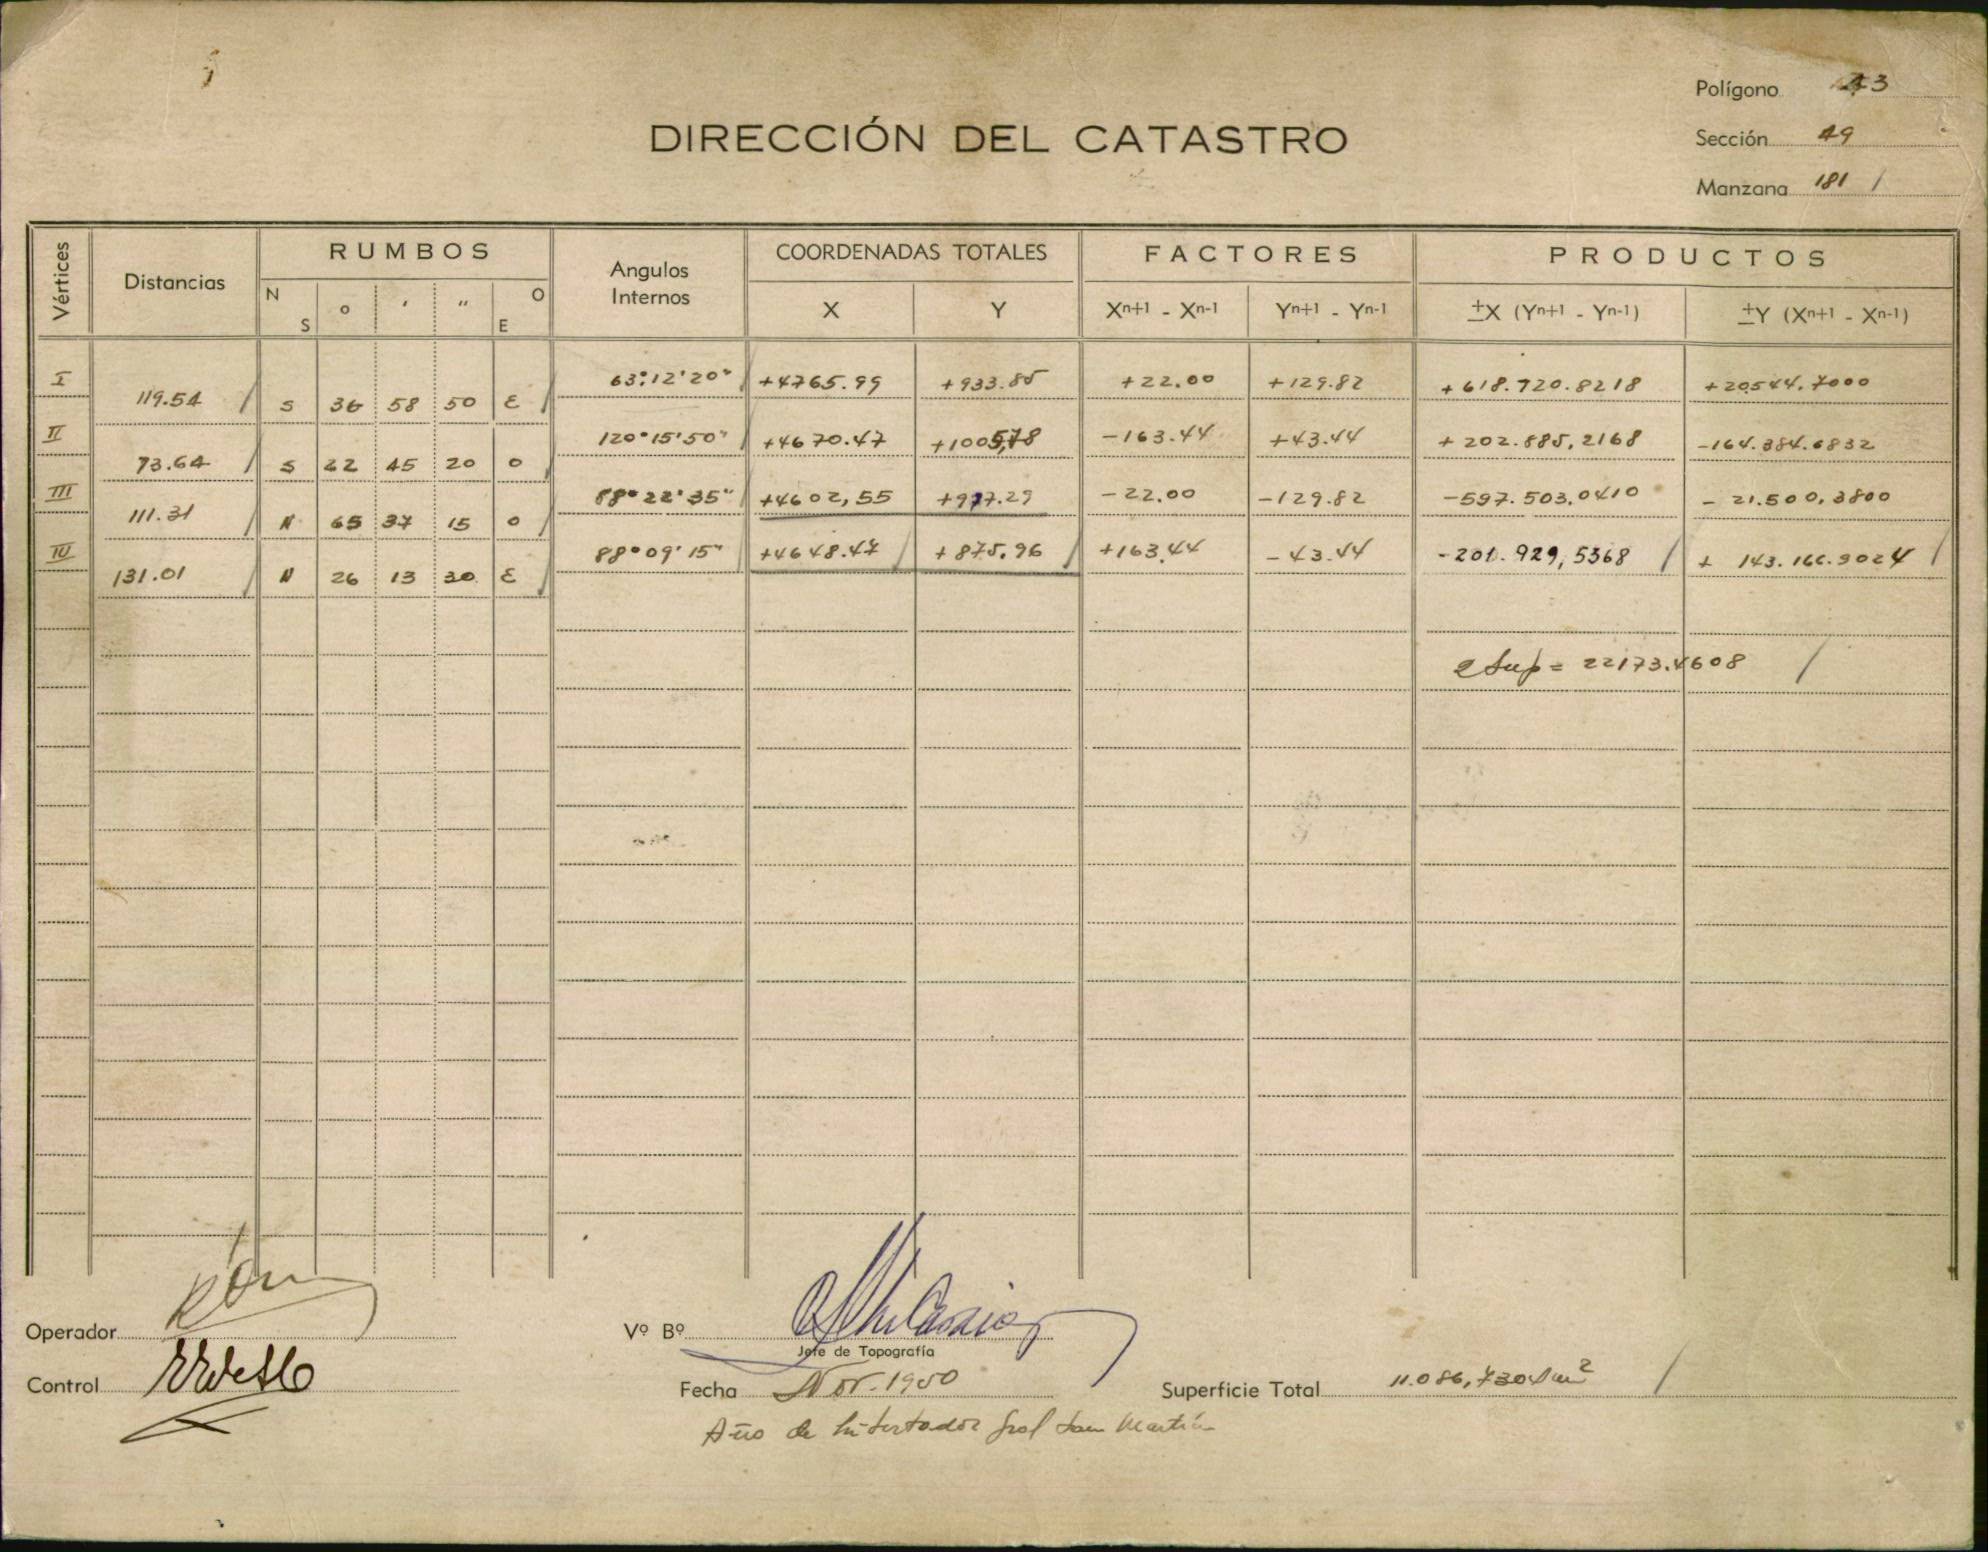 Polígono 43
DIRECCIÓN DEL CATASTRO
Sección 49
Manzana 181 /
Vértices Distancias RUMBOS Angulos Internos COORDENADAS TOTALES FACTORES PRODUCTOS
N S ° ' " O E X Y Xn+1 - Xn-1 Yn+1 - Yn-1 ±X (Yn+1 - Yn-1) ±Y (Xn+1 - Xn-1)
I 63°12'20" +4765.99 +933.85 +22.00 +129.82 +618.720.8218 +20544.7000
119.54 S 36 58 50 E
II 120°15'50" +4670.47 +1005,78 -163.44 +43.44 +202.885,2168 -164.384.6832
73.64 S 22 45 20 O
III 88°22'35" +4602,55 +977.29 -22.00 -129.82 -597.503,0410 -21.500,3800
111.31 N 65 37 15 O
IV 88°09'15" +4648.47 +875,96 +163,44 -43.44 -201.929,5368 / + 143.166.9024 /
131.01 N 26 13 30 E
2 Sup = 22173.4608 /
Operador
Vº Bº
Jefe de Topografía
Control
Fecha Nov. 1950
Superficie Total 11.086,7304 m² /
Año de Libertador Gral San Martín